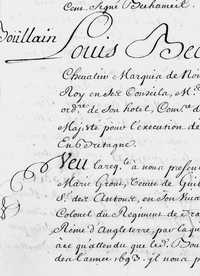 Com. Signé Bechameil
Boüllain
Louis Bec
Cheualier Marquis de Noi
Roy en Ses Conseils, M.
ord.re de Son hotel, Com.re d
Majesté pour l'execution de
En Bretagne
Veu la req.te a nous presen
Marie Grout, Veuve de Guil
S. des Clustour, en Son Viua
Colonel du Regiment de Dra
Reine d'Angleterre, par laqu
ace qu'attendu que led. Bou
des l'année 1693. il nous p